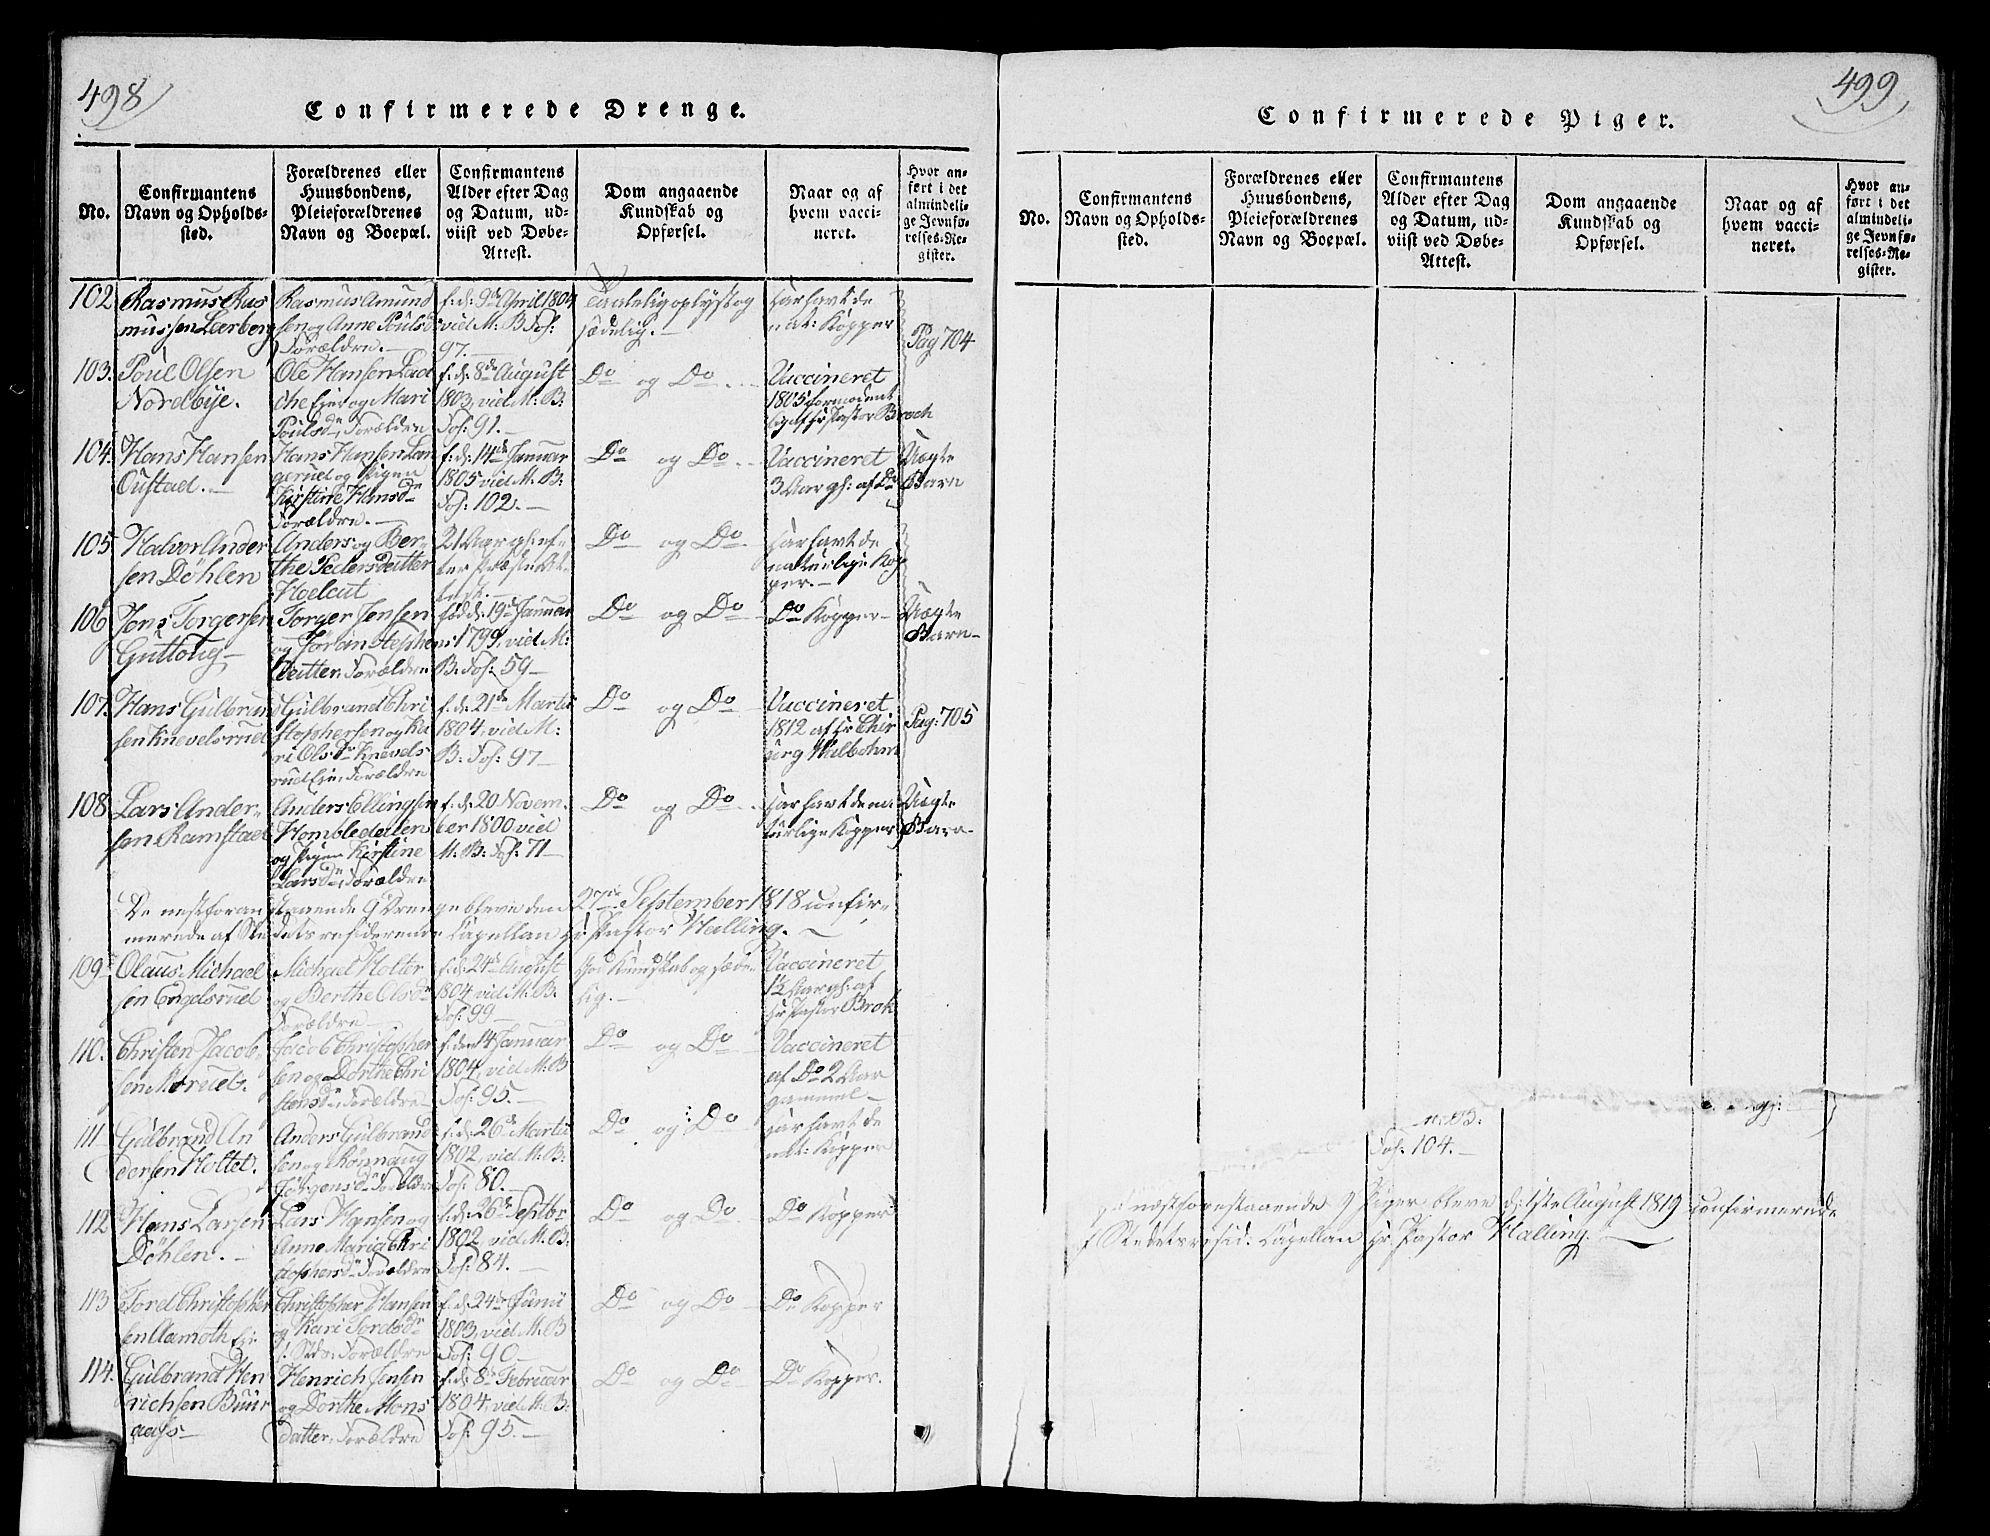 498
Confirmerede Drenge.
No.
Confirmantens
Navn og Opholds-
sted.
Forældrenes eller
Huusbondens,
Pleieforældrenes
Navn og Boepæl.
Confirmantens
Alder efter Dag
og Datum, ud-
viist ved Døbe-
Attest.
Dom angaaende
Kundskab og
Opførsel.
Naar og af
hvem vacci-
neret.
Hvor an-
ført i det
almindeli-
ge Jevnfø-
relses-Re-
gister.
102
Rasmus Ras
mussen Leerberg
Rasmus Amund
sen og Anne Poulsd:
Forældre.
f: d: 9de April 1804
vid M: B Fol:
97.
Taalelig oplyst og
sædelig.
har havt de
nat: Kopper
Pag 704
103.
Poul Olsen
Nordbye.
Ole Hansen
Eier og Mari
Poulsdr Forældre
f: d: 8de August
1803, vid M: B:
Fol: 91.
Do og Do
Vaccineret
1805 formodent
lig af Hr Pastor Broch
104.
Hans Hansen
Oustad.
Hans Hansen Lan
gerud og Pigen
Kirstine Hansdr
Forældre.
f: d: 14de Januar
1805 vid M: B:
Fol: 102.
Do og Do
Vaccineret
3 Aar gl: af Do
Uægte
Barn
105
Halvor Ander
sen Döhlen
Anders og Ber-
the Pedersdatter
21 Aar gl: ef-
ter Præste At-
test.
Do og Do
har havt de
naturlige Kop
per.
106
Jens Torgersen
Guttoug
Torger Jensen
og Jøran Stephens
datter, Forældre
fød d: 19de Januar
1799, vid M:
B: Fol: 59
Do og Do
Do Kopper
Uægte
Barn
107.
Hans Gulbrand
sen Knevelsrud
Gulbrand Chri
stophersen og Ka
ri Olsdr Knevels
rud Eie, Forældre
f: d: 21de Martii
1804, vid M:
B: Fol: 97
Do og Do
Vaccineret
1812 af Hr Chir
urg
Pag: 705
108
Lars Ander-
sen Ramstad
Anders Ellingsen
Hombledalen
og Pigen Kirstine
Larsdr, Forældre
f: d: 20 Novem-
ber 1800 vid
M: B: Fol: 71
Do og Do
har havt de na
turlige Kopper
Uægte
Barn
De næstforanstaaende 9 Drenge bleve den 27de September 1818 confir-
merede af Stedets residerende Capellan Hr Pastor Halling.
109
Olaus Michael
sen Engelsrud
Michael Holter
og Berthe Olsdr
Forældre
f: d: 24de August
1804 vid M: B:
Fol: 99
God Kundskab og sæde-
lig.
Vaccineret
1½ Aar gl: af
Hr Pastor Brok
110.
Christen Jacob-
sen Morud.
Jacob Christopher
sen og Dorthe Chri
stensdr, Forældre
f: den 14 Januar
1804, vid M: B
Fol: 95.
Do og Do
Vaccineret
af Do 2 Aar
gammel
111
Gulbrand An
dersen Holtet.
Anders Gulbrand
sen og Rönnaug
Jörgensdr Forældre
f: d: 26de Martii
1802, vid M: B:
Fol: 80.
Do og Do
har havt de
nat: Kopper
112
Hans Larsen
Döhlen.
Lars Hansen og
Anne Maria Chri
stophersdr Forældre
f: d: 26de Septbr
1802, vid M: B:
Fol: 84.
Do og Do
Do Kopper
113
Tord Christopher
sen Aamoth Eie
Christopher Hansen
og Kari Tordsdr
Forældre
f: d: 24de Junii
1803, vid M: B
Fol: 90
Do og Do
Do Kopper
114.
Gulbrand Hen
richsen Buur
aas
Henrich Jensen
og Dorthe Mons
datter, Forældre
f: d: 8de Februar
1804, vid M: B:
Fol: 95.
Do og Do
Do Kopper.
499
Confirmerede Piger.
No.
Confirmantens
Navn og Opholds-
sted.
Forældrenes eller
Huusbondens,
Pleieforældrenes
Navn og Boepæl.
Confirmantens
Alder efter Dag
og Datum, ud-
viist ved Døbe-
Attest.
Dom angaaende
Kundskab og
Opførsel.
Naar og af
hvem vacci-
neret.
Hvor an-
ført i det
almindeli-
ge Jevnfø-
relses-Re-
gister.
Fol: 104.
næstforestaaende 9 Piger bleve d: 1ste August 1819 confirmerede
f Stedets resid. Capellan Hr Pastor Halling.